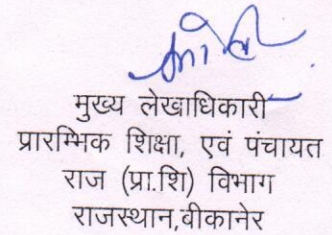 मुख्य लेखाधिकारी
प्रारम्भिक शिक्षा, एवं पंचायत
राज (प्रा.शि) विभाग
राजस्थान,बीकानेर